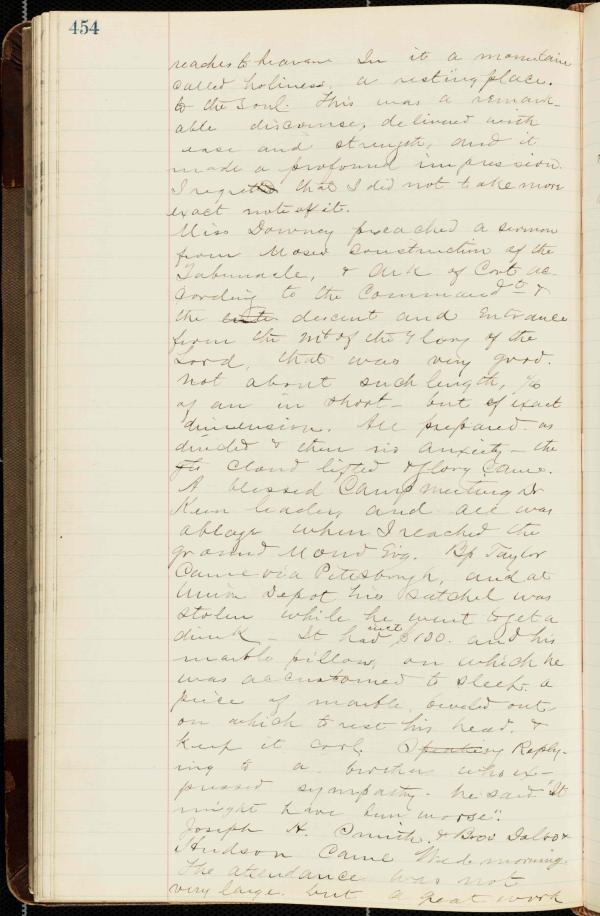 454
reaches to heaven In it a mountain
called holiness, a resting place.
to the Soul. This was a remark-
able discourse, delivered with
ease and strength, and it
made a profound impression.
I regret that I did not take more
exact note of it.
Miss Downey preached a sermon
from Moses construction of the
Tabernacle, & Ark of Covt ac
cording to the Command &
the descent and Entrance
from the Mt of the Glory of the
Lord, that was very good.
Not about such length,
of an in short - but of exact
dimension. All prepared as
divided & then no anxiety - the
cloud lifted & Glory Came.
A blessed Camp meeting Dr
Keen leading and all was
ablaze when I reached the
ground Mond Evg. Bp Taylor
Came via Pittsburgh, and at
Union Depot his satchel was
stolen while he went to get a
drink - It had $100. and his
marble pillow, on which he
was accustomed to sleep. a
piece of marble, beveled out-
on which to rest his head. &
keep it cool. Speaking Reply-
ing to a brother who ex-
pressed sympathy. he said "It
might have been worse".
Joseph H. Smith, & Bros &
Hudson Came Wed morning.
The attendance was not
very large. but a great work